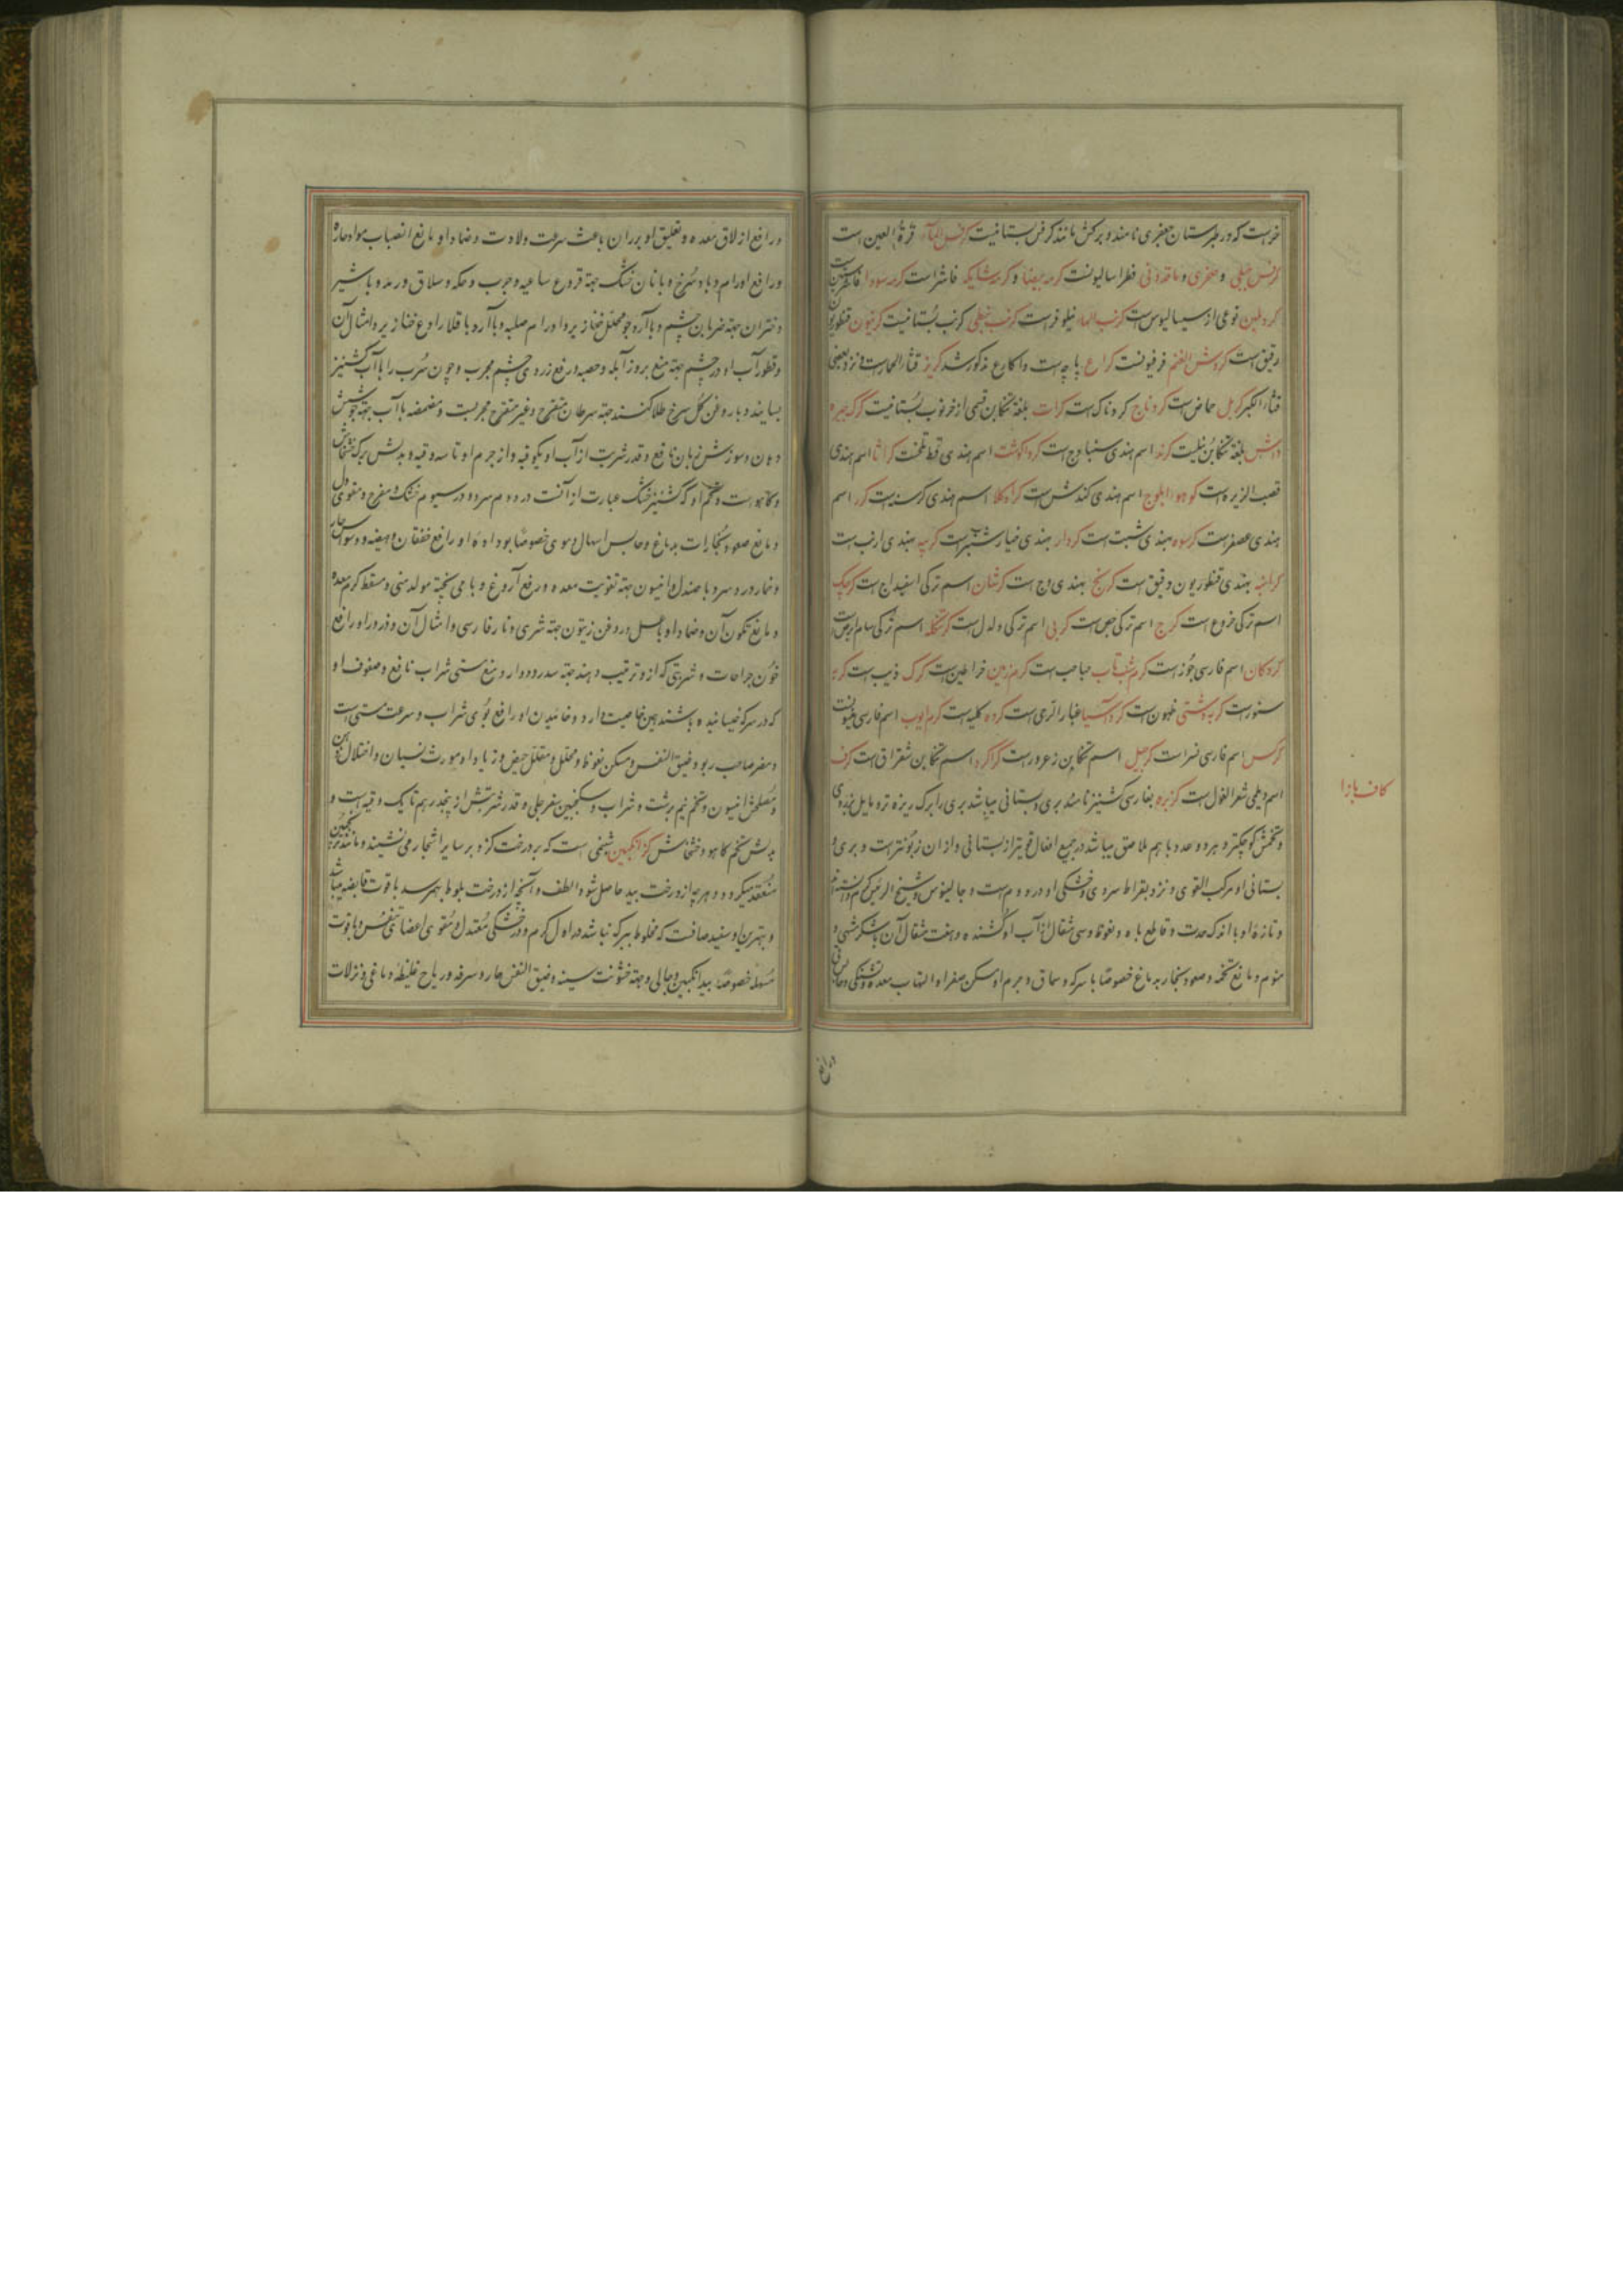 خرست که در طبرستان جعفری نامند و برکش مانند کرفس بستانیست کرفس الماء قرة العین است
کرفس جبلی و صخری و ماقدونی فطراسالیونست کرمه بیضا و کرمه شایکه فاشراست کرمه سودا فاشرستین است
کردطین نوعی از سیسالیوس است کرنب الماء نیلوفرست کرنب نبطی کرنب بستانیست کرنیون قنطوریون
رقیق است کروش الغنم فرفیونست کراع پاچه است و اکارع مذکور شد کریز قثاء الحمارست و نزد بعضی
قثاء الکبر کربل حماض است کروناج کردناک است کرات بلغة تنکابن قسمی از خرنوب بستانیست کرک
بلغة تنکابن نیلست کرند اسم هندی سنباوج است کرواکوشت اسم هندی قسط تلخست کراثا اسم هندی
قصب الزیره است اسم هندی کندش است اسم هندی کرسنه است کرر اسم
هندی عصفرست کرسوه بهندی شبت است کردار بهندی خیارشنبر است کربه بهندی ارنب است
بهندی قنطوریون دقیق است کرنج بهندی وج است کرشان اسم ترکی اسفیداج است کرچک
اسم ترکی خروع است کرج اسم ترکی جص است کرپی اسم ترکی دلدل است اسم ترکی سام ابرص است
کردکان اسم فارسی جوز است کرم شب تاب حباحب است کرم زمین خراطین است کرک ذیب است کربه
سنورست کربه دشتی است کرد آسیا غبار الرحی است کرده کلیه است کرم ایوب اسم فارسی
کرکس اسم فارسی نسرات کرجیل اسم تنکابن زعرورست کراکرا اسم تنکابن شقراق است کرف
اسم دیلمی شعر الغول است کزبره بفارسی کشنیز نامند بری و بستانی میباشد بری را برک ریزه تر و مایل بزردی
و تخمش کوچکتر و هر دو عدد با هم ملاصق میباشد در جمیع افعال قویتر از بستانی و از ان زبونترست و بری و
بستانی او مرکب القوی و نزد بقراط سردی و خشکی او در دوم است و جالینوس و شیخ الرئیس کرم دانسته اند
و تازهٔ او با اندک حدت و قاطع باه و نعوظ و سی مثقال از آب او کشنده و هفت مثقال آن با شکر مشهی و
منوم و مانع تخمه و صعود بخار بدماغ خصوصًا با سرکه و سماق و جرم او مسکن صفرا و التهاب معده و تشنکی و حابس قی
کاف با زا
و رافع
و رافع ازلاق معده و تعلیق او بر ران باعث سرعت ولادت و ضماد او مانع انصباب مواد حاره
و رافع اورام و با و با نان خشک جهة قروح ساعیه و جرب و حکه و سلاق و رمد و با شیر
دختران جهة ضربان چشم و با آرد جو محلل خنازیر و اورام صلبه و با آرد باقلا رادع خنازیر و امثال آن
و قطور آب او در چشم جهة منع بروز آبله و حصبه و رفع زردی چشم مجرب و چون سرب را با آب کشنیز
بسایند و با روغن کل سرخ طلا کنند جهة سرطان متقرح و غیر متقرح مجربست و مضمضه با آب جهة جوشش
دهان و سوزش زبان نافع و قدر شربت از آب او یکوقیه و از جرم او تا سه وقیه و بدلش برک خشخاش
و کاهو است و تخم او که کشنیز خشک عبارت از آنست در دوم سرد و در سیوم خشک و مفرح و مقوی دل
و مانع صعود بخارات بدماغ و حابس اسهال دموی خصوصًا بوداده او رافع خفقان و هیضه و وسواس حار
و نهار در د سر و با صندل و انیسون جهة تقویت معده و رفع آروغ و با می پخته مولد منی و مسقط کرم معده
و مانع تکون آن و ضماد او با عسل و روغن زیتون جهة شری و نار فارسی و امثال آن و ذرور او رافع
خون جراحات و شربتی که از و ترتیب دهند جهة سدر و دوار و منع مستی شراب نافع و سفوف او
که در سرکه خیسانیده باشند همین خاصیت دارد و خائیدن او رافع بوی شراب و سرعت مستی است
و مضر صاحب ربو و ضیق النفس و مسکن نعوظ و مجفف و مقلل حیض و زیاد او مورث نسیان و اختلال ذهن
و مصلحش انیسون و تخم نیم برشت و شراب و سکنجبین سفرجلی و قدر شربتش از پنجدرهم تا یک وقیه است و
بدلش تخم کاهو و خشخاش کزانکبین شبنمی است که بر درخت کز و بر سایر اشجار می نشیند و مانند ترنجبین
منعقد میکردد و هرچه از درخت بید حاصل شود الطف و آنچه از درخت بلوط بهم رسد با قوت قابضه میباشد
و بهترین او سفید صافست که مخلوط ببرک نباشد در اول کرم و در خشکی معتدل و مقوی اعضای تنفس و با قوت
مسهله خصوصًا بید انکبین و جالی و جهة خشونت سینه و ضیق النفس حار و سرفه و ریاح غلیظه و دماغی و نزلات